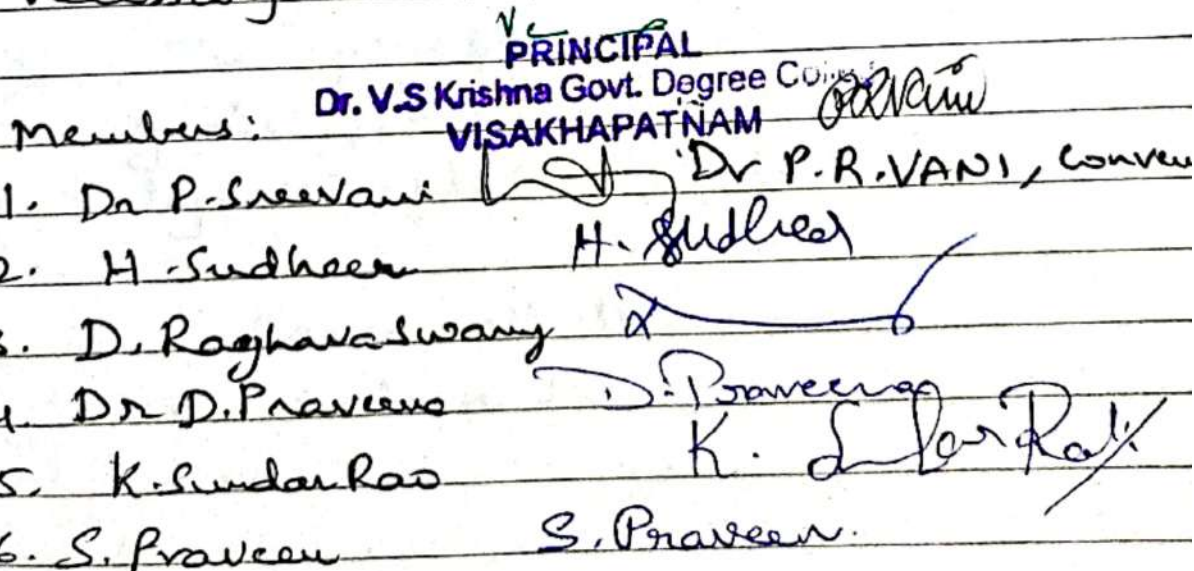 PRINCIPAL
Dr. V.S Krishna Govt. Degree
VISAKHAPATNAM
Members:
Dr P.R.VANI,
1. Dr P. Sreevani
2. H. Sudheer H. Sudheer
3. D. Raghavaswamy
4. Dr D. Praveena D. Praveena
5. K. Sundar Rao K.
6. S. Praveen S. Praveen.